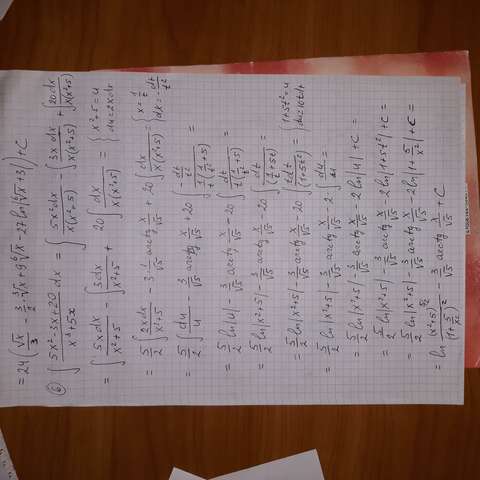 = 24(√x/3 - 3/2 ∛x + 9 ⁶√x - 27 ln|⁶√x + 3|) + C
⑥ ∫ (5x² - 3x + 20)/(x³ + 5x) dx = ∫ 5x² dx/(x(x² + 5)) - ∫ 3x dx/(x(x² + 5)) + ∫ 20 dx/(x(x² + 5))
= ∫ 5x dx/(x² + 5) - ∫ 3 dx/(x² + 5) + 20 ∫ dx/(x(x² + 5)) = { x² + 5 = u
du = 2x dx
= 5/2 ∫ 2x dx/(x² + 5) - 3 · 1/√5 arctg x/√5 + 20 ∫ dx/(x(x² + 5)) = { x = 1/t
dx = - dt/t²
= 5/2 ∫ du/u - 3/√5 arctg x/√5 + 20 ∫ (- dt/t²)/(1/t (1/t² + 5)) =
= 5/2 ln|u| - 3/√5 arctg x/√5 - 20 ∫ dt/(t(1/t² + 5)) =
= 5/2 ln|x² + 5| - 3/√5 arctg x/√5 - 20 ∫ dt/(1/t + 5t) =
= 5/2 ln|x² + 5| - 3/√5 arctg x/√5 - 20 ∫ t dt/(1 + 5t²) = { 1 + 5t² = u
du = 10t dt
= 5/2 ln|x² + 5| - 3/√5 arctg x/√5 - 2 ∫ du/u =
= 5/2 ln|x² + 5| - 3/√5 arctg x/√5 - 2 ln|u| + C =
= 5/2 ln|x² + 5| - 3/√5 arctg x/√5 - 2 ln|1 + 5t²| + C =
= 5/2 ln|x² + 5| - 3/√5 arctg x/√5 - 2 ln|1 + 5/x²| + C =
= ln (x² + 5)^(5/2)/(1 + 5/x²)² - 3/√5 arctg x/√5 + C